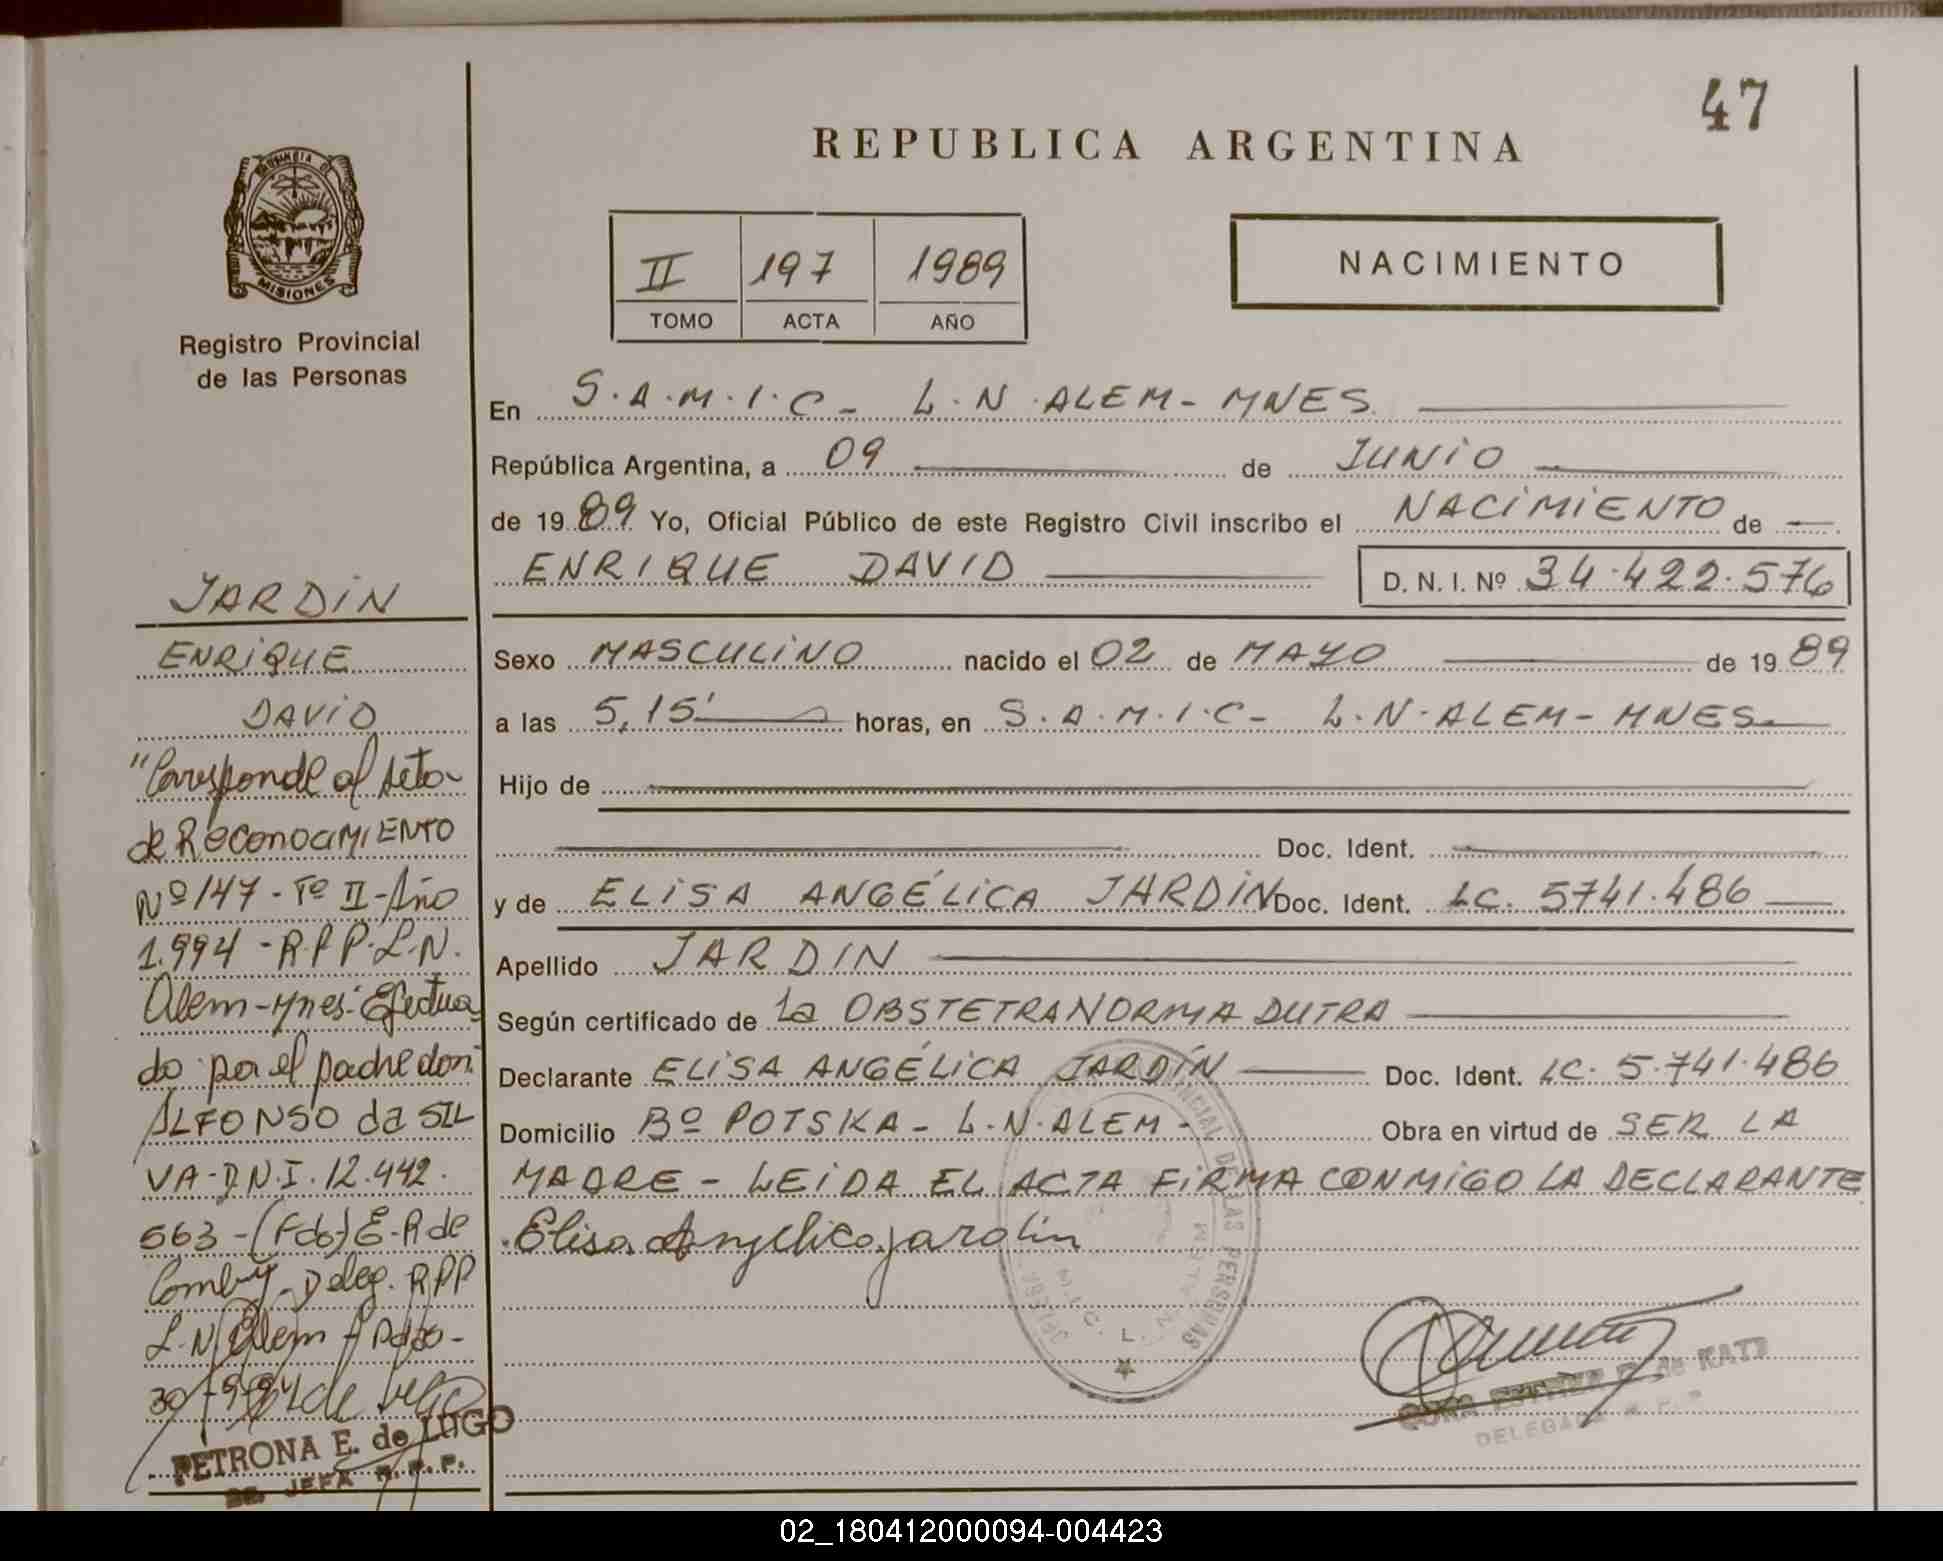 47
REPUBLICA ARGENTINA
MISIONES
Registro Provincial
de las Personas
II 197 1989
TOMO ACTA AÑO
NACIMIENTO
En S.A.M.I.C - L.N. ALEM - MNES
República Argentina, a 09 de JUNIO
de 1989 Yo, Oficial Público de este Registro Civil inscribo el NACIMIENTO de
ENRIQUE DAVID D. N. I. Nº 34.422.576
Sexo MASCULINO nacido el 02 de MAYO de 1989
a las 5,15' horas, en S.A.M.I.C - L.N. ALEM - MNES
Hijo de
Doc. Ident.
y de ELISA ANGÉLICA JARDIN Doc. Ident. LC. 5741.486
Apellido JARDIN
Según certificado de La OBSTETRA NORMA DUTRA
Declarante ELISA ANGÉLICA JARDÍN Doc. Ident. LC. 5.741.486
Domicilio Bº POTSKA - L.N. ALEM - Obra en virtud de SER LA
MADRE - LEIDA EL ACTA FIRMA CONMIGO LA DECLARANTE
Elisa Angelica jardin
JARDIN
ENRIQUE
DAVID
"Corresponde al Acta
de Reconocimiento
Nº 147 - Tº II - Año
1.994 - R.P.P. L.N.
Alem - Mnes. Efectua
do por el padre don
ALFONSO da SIL
VA - D.N.I. 12.442.
563 - (Fdo) E. R de
Deleg. RPP
L.N. Alem
PETRONA E. de LUGO
JEFA R.P.P.
DE LAS PERSONAS
S.I.C. L.N. ALEM
ESTHER de KATZ
DELEGADA R.P.P
02_180412000094-004423